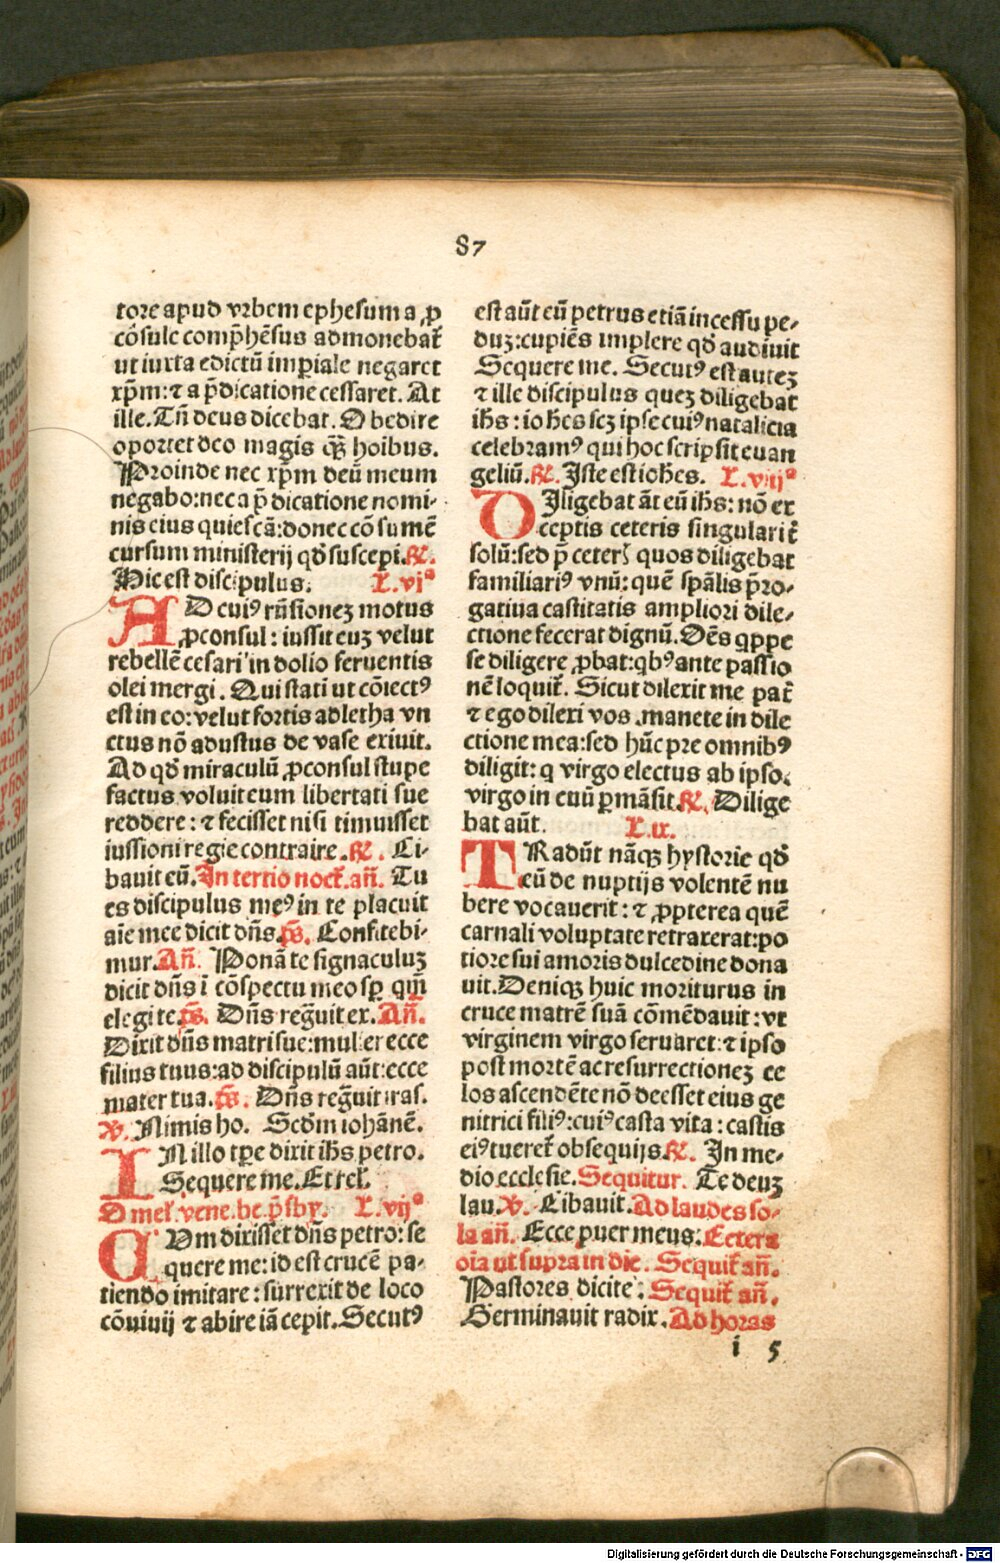 87
tore apud vrbem ephesum a ꝓ
cōsule comp̄hēsus admonebat᷑
ut iuxta edictū imꝑiale negaret
xp̄m: ⁊ a p̄dicatione cessaret. At
ille. Tn̄ deus dicebat. Obedire
oportet deo magis qȝ̄ hoibus.
Proinde nec xp̄m deū meum
negabo: nec a p̄dicatione nomi-
nis eius quiescā: donec cōsumē
cursum ministerij qd̄ suscepi. ℟.
Hic est discipulus. L.vjª
AD cuiꝰ rn̄sionez motus
ꝓconsul: iussit euz velut
rebellē cesari in dolio feruentis
olei mergi. Qui statī ut cōiectꝰ
est in eo: velut fortis adletha vn
ctus nō adustus de vase exiuit.
Ad qd̄ miraculū ꝓconsul stupe
factus voluit eum libertati sue
reddere: ⁊ fecisset nisi timuisset
iussioni regie contraire. ℟. Ci-
bauit eū. In tertio noct᷑. an̄. Tu
es discipulus meꝰ in te placuit
aīe mee dicit dn̄s. ps̄. Confitebi-
mur. An̄. Ponā te signaculuȝ
dicit dn̄s ī cōspectu meo sꝑ qm̄
elegi te. ps̄. Dn̄s reḡuit ex. An̄.
Dixit dn̄s matri sue: mulier ecce
filius tuus: ad discipulū aūt: ecce
mater tua. ps̄. Dn̄s reḡuit iras.
℣. Nimis ho. Scd̄m iohānē.
IN illo tꝑe dixit ih̄s petro.
Sequere me. Et rel̄.
Omel̄. vene. be. p̄sby. L.vijª
CUm dixisset dn̄s petro: se
quere me: id est crucē pa-
tiendo imitare: surrexit de loco
cōuiuij ⁊ abire iā cepit. Secutꝰ
est aūt eū petrus etiā incessu pe-
duȝ: cupiēs implere qd̄ audiuit
Sequere me. Secutꝰ est autez
⁊ ille discipulus quez diligebat
ih̄s: ioh̄es scȝ ipse cuiꝰ natalicia
celebramꝰ qui hoc scripsit euan
geliū. ℟. Iste est ioh̄es. L.viijª
DIligebat āt eū ih̄s: nō ex
ceptis ceteris singularit᷑
solū: sed p̄ ceterꝭ quos diligebat
familiariꝰ vnū: quē sp̄alis p̄ro-
gatiua castitatis ampliori dile-
ctione fecerat dignū. Oēs qꝑpe
se diligere ꝓbat: qbꝰ ante passio
nē loquit᷑. Sicut dilexit me pat᷑
⁊ ego dilexi vos. manete in dile
ctione mea: sed hūc pre omnibꝰ
diligit: q virgo electus ab ipso.
virgo in euū ꝑmāsit. ℟. Dilige
bat aūt. L.ix.
TRadūt nāqȝ hystorie qd̄
eū de nuptijs volentē nu
bere vocauerit: ⁊ ꝓpterea quē
carnali voluptate retraxerat: po
tiore sui amoris dulcedine dona
uit. Deniqȝ huic moriturus in
cruce matrē suā cōmēdauit: vt
virginem virgo seruaret: ⁊ ipso
post mortē ac resurrectionez ce
los ascendēte nō deesset eius ge
nitrici filiꝰ: cuiꝰ casta vita: castis
eiꝰ tueret᷑ obsequijs. ℟. In me-
dio ecclesie. Sequitur. Te deuȝ
lau. ℣. Cibauit. Ad laudes so-
la an̄. Ecce puer meus. Cetera
oīa ut supra in die. Sequit᷑ an̄.
Pastores dicite. Sequit᷑ an̄.
Germinauit radix. Ad horas
i 5
Digitalisierung gefördert durch die Deutsche Forschungsgemeinschaft - DFG